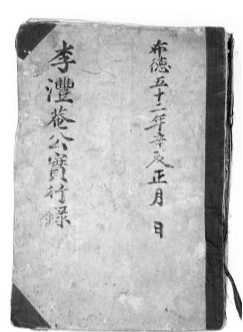 布德五十二年辛亥正月 日
李灃菴公實行錄